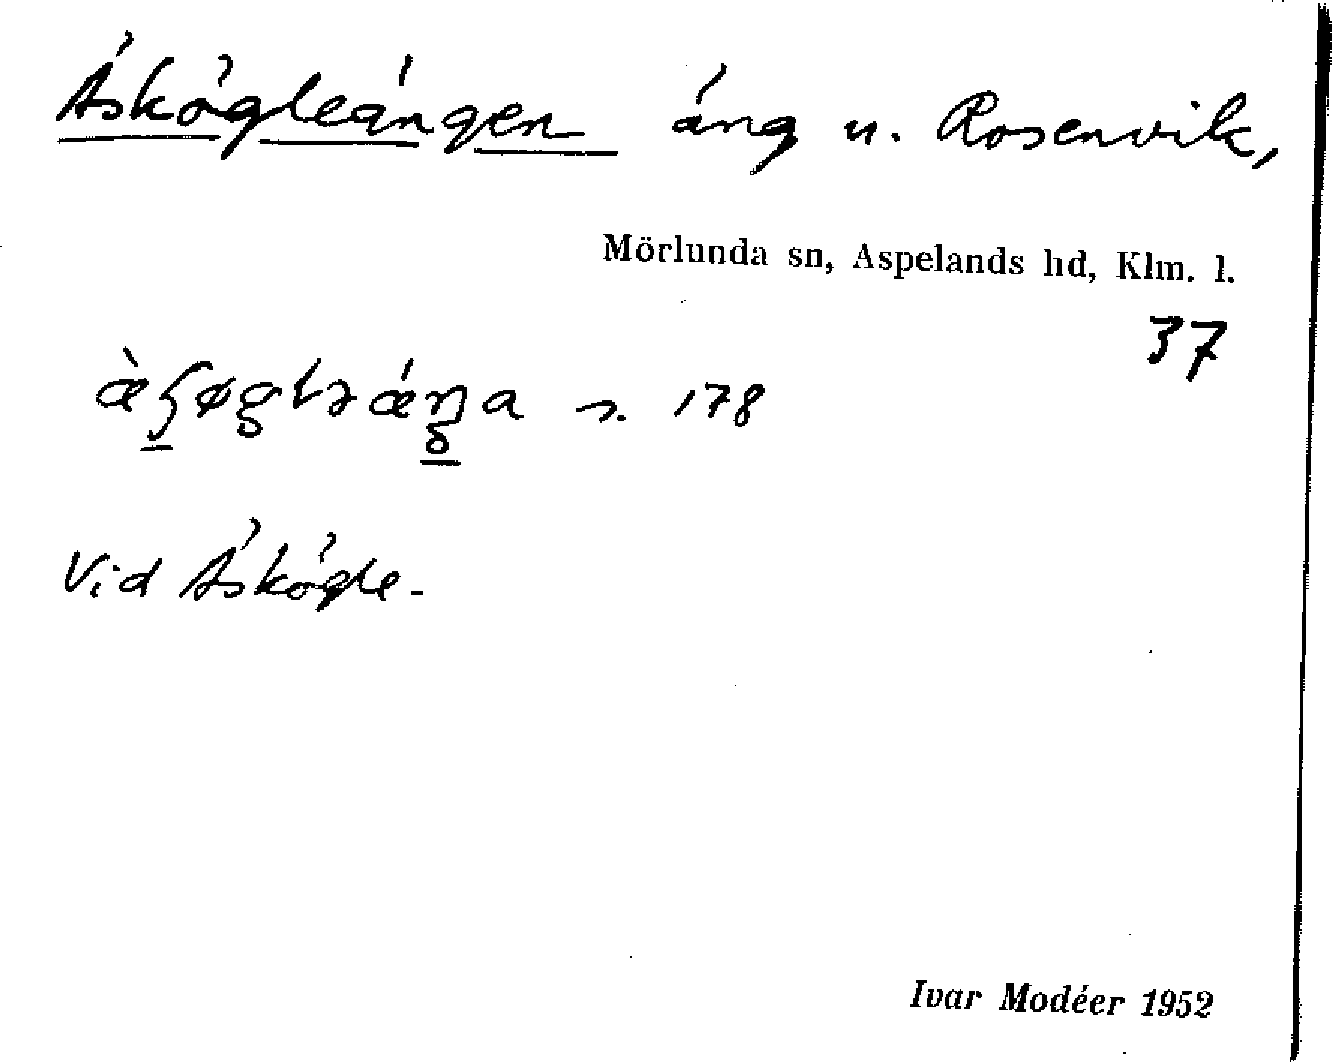 Äskögleängen äng u. Rosenvik,
Mörlunda sn, Aspelands hd, Klm. l.
37
s. 178
Vid Äskögle.
Ivar Modéer 1952